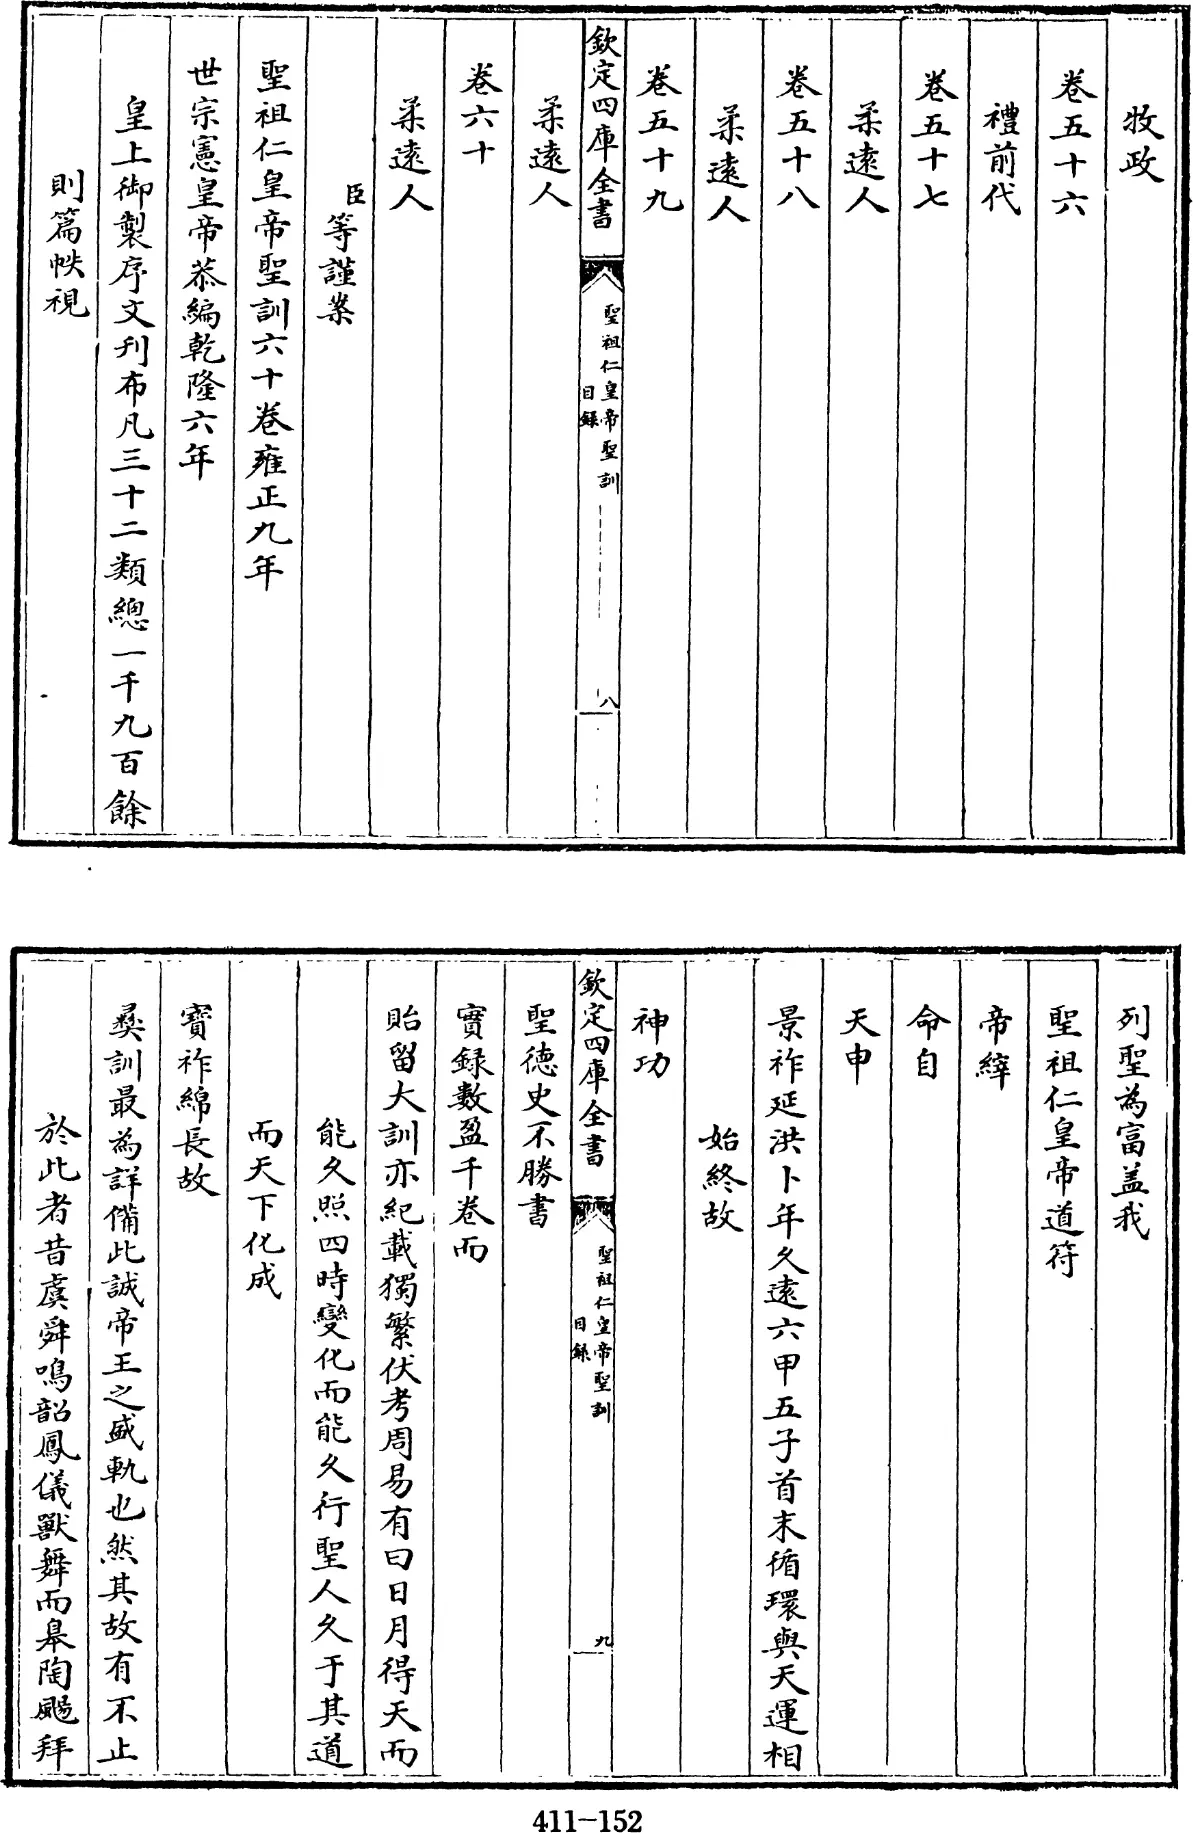 牧政
卷五十六
禮前代
卷五十七
柔遠人
卷五十八
柔遠人
卷五十九
欽定四庫全書
聖祖仁皇帝聖訓
目錄
八
柔遠人
卷六十
柔遠人
臣等謹案
聖祖仁皇帝聖訓六十卷雍正九年
世宗憲皇帝恭編乾隆六年
皇上御製序文刋布凡三十二類總一千九百餘
則篇帙視
列聖為富盖我
聖祖仁皇帝道符
帝繂
命自
天申
景祚延洪卜年久遠六甲五子首末循環與天運相
始終故
神功
欽定四庫全書
聖祖仁皇帝聖訓
目錄
九
聖德史不勝書
實録數盈千卷而
貽留大訓亦紀載獨繁伏考周易有曰日月得天而
能久照四時變化而能久行聖人久于其道
而天下化成
寶祚綿長故
彜訓最為詳備此誠帝王之盛軌也然其故有不止
於此者昔虞舜鳴韶鳳儀獸舞而皋陶颺拜
411-152